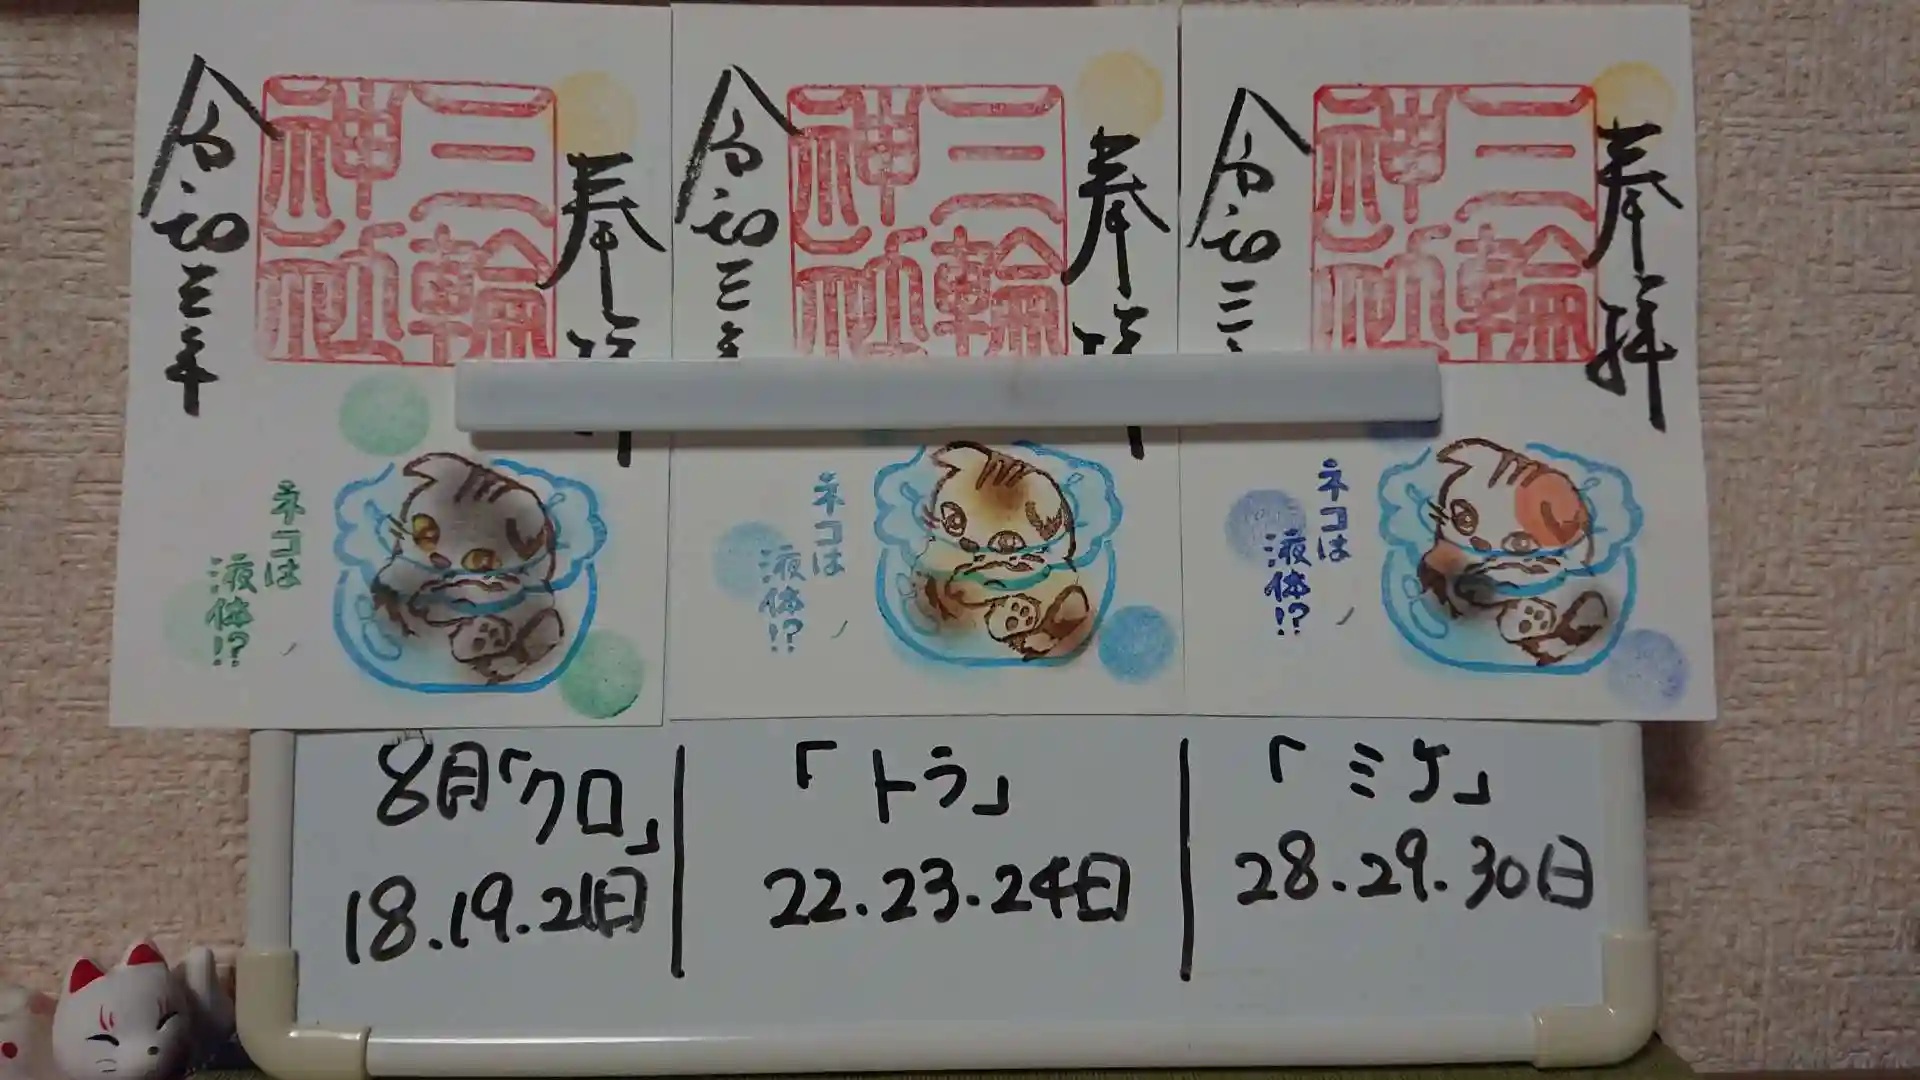 奉拝
三輪
神社
令和三年
ネコは
液体!?
奉拝
三輪
神社
令和三年
ネコは
液体!?
奉拝
三輪
神社
令和三
ネコは
液体!?
8月「クロ」
18.19.21日
「トラ」
22.23.24日
「ミケ」
28.29.30日